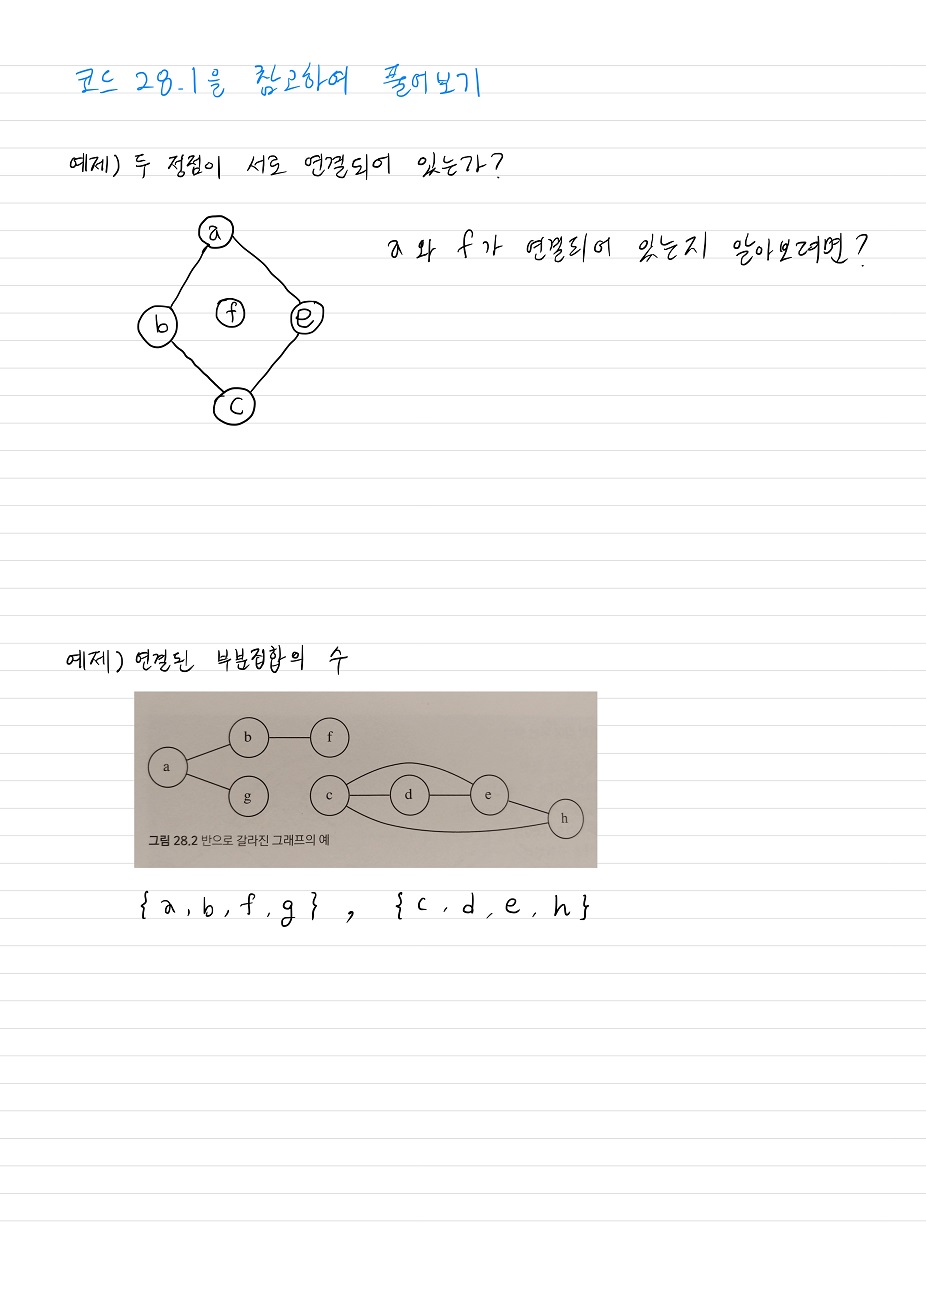 코드 28.1을 참고하여 풀어보기
예제) 두 정점이 서로 연결되어 있는가?
a
a와 f가 연결되어 있는지 알아보려면?
b
f
e
c
예제) 연결된 부분집합의 수
b
f
a
g
c
d
e
h
그림 28.2 반으로 갈라진 그래프의 예
{a, b, f, g}, {c, d, e, h}